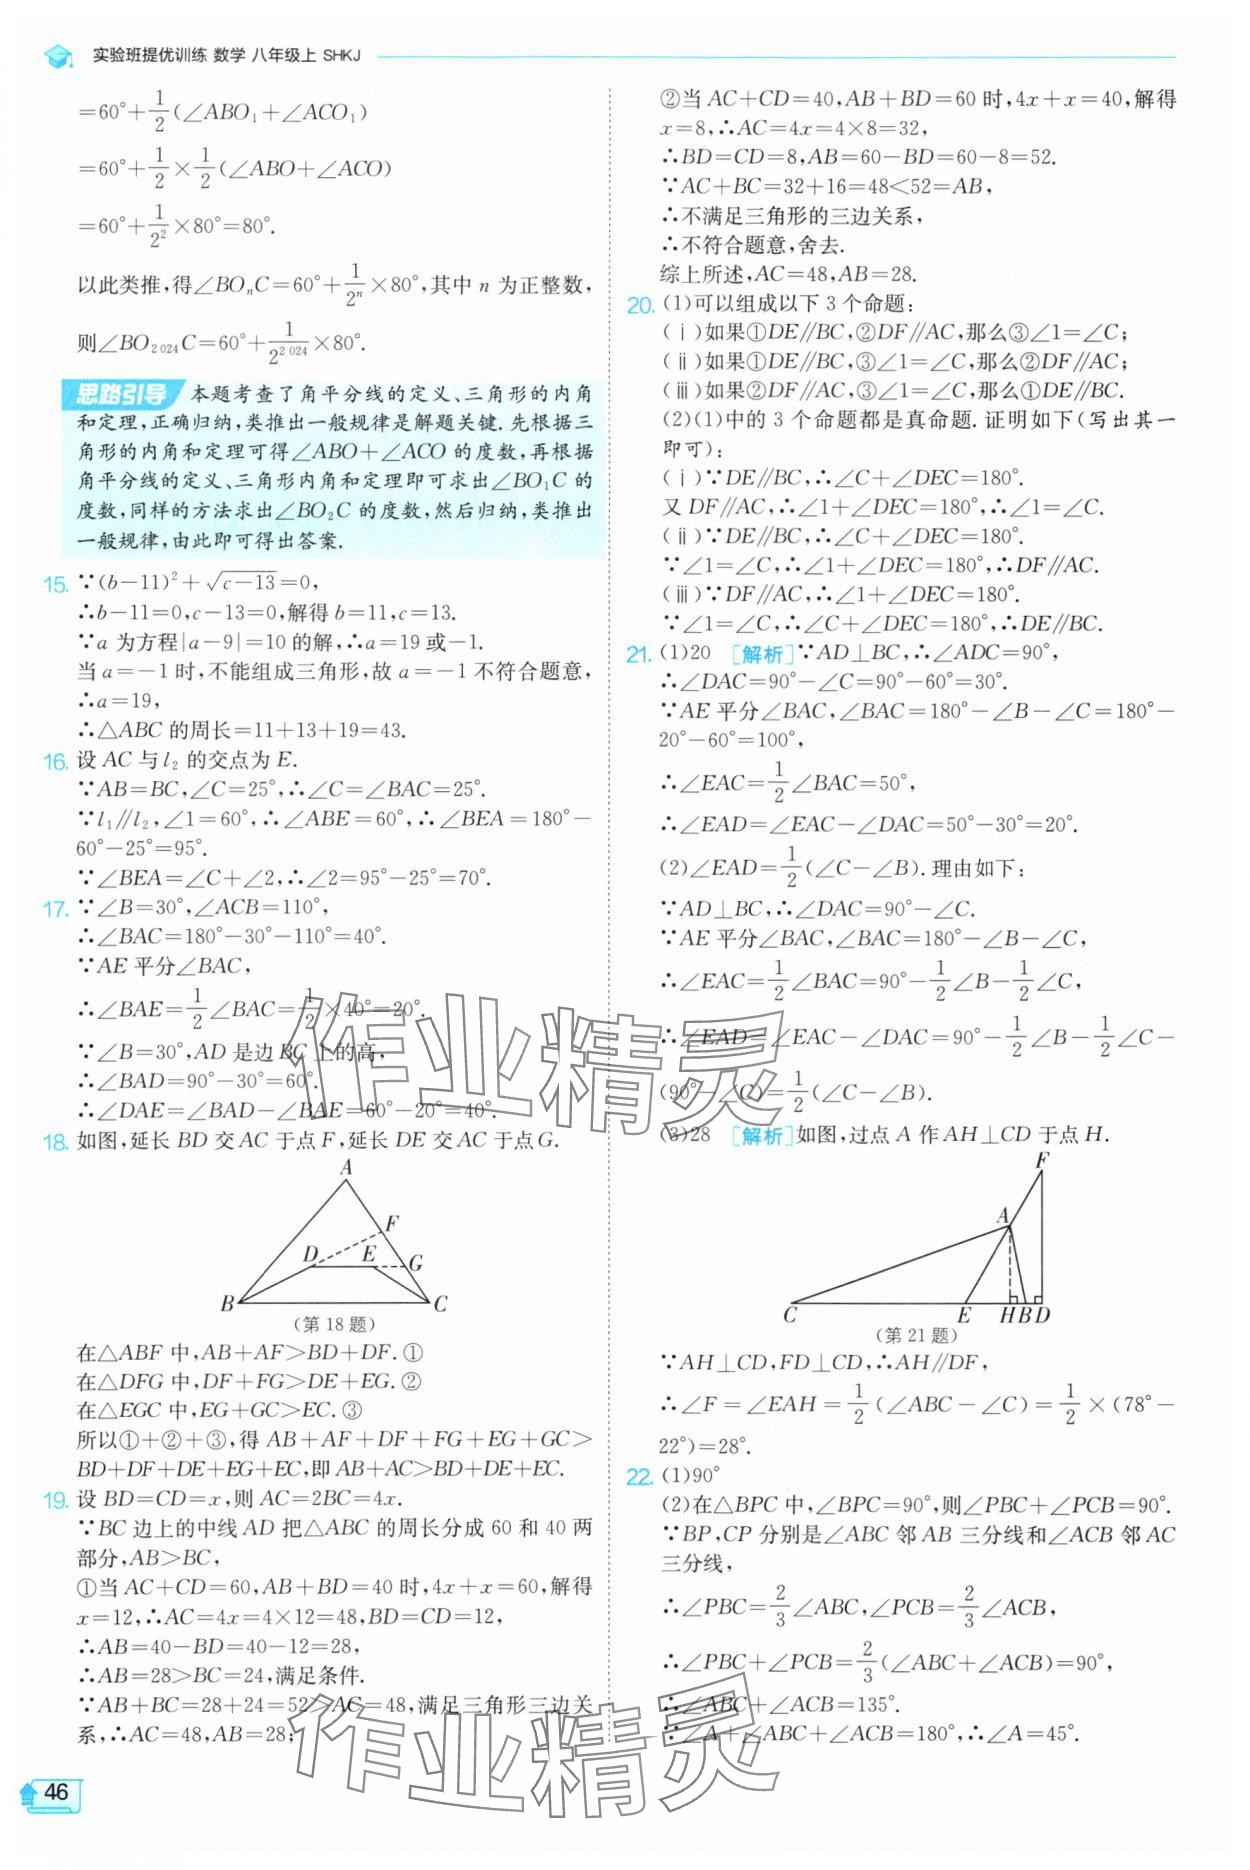 实验班提优训练 数学 八年级上 SHKJ
=60°+1/2(∠ABO₁+∠ACO₁)
=60°+1/2×1/2(∠ABO+∠ACO)
=60°+1/2²×80°=80°.
以此类推,得∠BOₙC=60°+1/2ⁿ×80°,其中 n 为正整数,
则∠BO₂₀₂₄C=60°+1/2²⁰²⁴×80°.
思路引导 本题考查了角平分线的定义、三角形的内角
和定理,正确归纳,类推出一般规律是解题关键.先根据三
角形的内角和定理可得∠ABO+∠ACO 的度数,再根据
角平分线的定义、三角形内角和定理即可求出∠BO₁C 的
度数,同样的方法求出∠BO₂C 的度数,然后归纳,类推出
一般规律,由此即可得出答案.
15. ∵(b-11)²+√(c-13)=0,
∴b-11=0,c-13=0,解得 b=11,c=13.
∵a 为方程|a-9|=10 的解,∴a=19 或-1.
当 a=-1 时,不能组成三角形,故 a=-1 不符合题意,
∴a=19,
∴△ABC 的周长=11+13+19=43.
16. 设 AC 与 l₂ 的交点为 E.
∵AB=BC,∠C=25°,∴∠C=∠BAC=25°.
∵l₁∥l₂,∠1=60°,∴∠ABE=60°,∴∠BEA=180°-
60°-25°=95°.
∵∠BEA=∠C+∠2,∴∠2=95°-25°=70°.
17. ∵∠B=30°,∠ACB=110°,
∴∠BAC=180°-30°-110°=40°.
∵AE 平分∠BAC,
∴∠BAE=1/2∠BAC=1/2×40°=20°.
∵∠B=30°,AD 是边 BC 上的高,
∴∠BAD=90°-30°=60°.
∴∠DAE=∠BAD-∠BAE=60°-20°=40°.
18. 如图,延长 BD 交 AC 于点 F,延长 DE 交 AC 于点 G.
A
F
D E G
B C
(第 18 题)
在△ABF 中,AB+AF>BD+DF.①
在△DFG 中,DF+FG>DE+EG.②
在△EGC 中,EG+GC>EC.③
所以①+②+③,得 AB+AF+DF+FG+EG+GC>
BD+DF+DE+EG+EC,即 AB+AC>BD+DE+EC.
19. 设 BD=CD=x,则 AC=2BC=4x.
∵BC 边上的中线 AD 把△ABC 的周长分成 60 和 40 两
部分,AB>BC,
①当 AC+CD=60,AB+BD=40 时,4x+x=60,解得
x=12,∴AC=4x=4×12=48,BD=CD=12,
∴AB=40-BD=40-12=28,
∴AB=28>BC=24,满足条件.
∵AB+BC=28+24=52>AC=48,满足三角形三边关
系,∴AC=48,AB=28;
46
②当 AC+CD=40,AB+BD=60 时,4x+x=40,解得
x=8,∴AC=4x=4×8=32,
∴BD=CD=8,AB=60-BD=60-8=52.
∵AC+BC=32+16=48<52=AB,
∴不满足三角形的三边关系,
∴不符合题意,舍去.
综上所述,AC=48,AB=28.
20. (1)可以组成以下 3 个命题:
(ⅰ)如果①DE∥BC,②DF∥AC,那么③∠1=∠C;
(ⅱ)如果①DE∥BC,③∠1=∠C,那么②DF∥AC;
(ⅲ)如果②DF∥AC,③∠1=∠C,那么①DE∥BC.
(2)(1)中的 3 个命题都是真命题.证明如下(写出其一
即可):
(ⅰ)∵DE∥BC,∴∠C+∠DEC=180°.
又 DF∥AC,∴∠1+∠DEC=180°,∴∠1=∠C.
(ⅱ)∵DE∥BC,∴∠C+∠DEC=180°.
∵∠1=∠C,∴∠1+∠DEC=180°,∴DF∥AC.
(ⅲ)∵DF∥AC,∴∠1+∠DEC=180°.
∵∠1=∠C,∴∠C+∠DEC=180°,∴DE∥BC.
21. (1)20 [解析]∵AD⊥BC,∴∠ADC=90°,
∴∠DAC=90°-∠C=90°-60°=30°.
∵AE 平分∠BAC,∠BAC=180°-∠B-∠C=180°-
20°-60°=100°,
∴∠EAC=1/2∠BAC=50°,
∴∠EAD=∠EAC-∠DAC=50°-30°=20°.
(2)∠EAD=1/2(∠C-∠B).理由如下:
∵AD⊥BC,∴∠DAC=90°-∠C.
∵AE 平分∠BAC,∠BAC=180°-∠B-∠C,
∴∠EAC=1/2∠BAC=90°-1/2∠B-1/2∠C,
∴∠EAD=∠EAC-∠DAC=90°-1/2∠B-1/2∠C-
(90°-∠C)=1/2(∠C-∠B).
(3)28 [解析]如图,过点 A 作 AH⊥CD 于点 H.
F
A
C E H B D
(第 21 题)
∵AH⊥CD,FD⊥CD,∴AH∥DF,
∴∠F=∠EAH=1/2(∠ABC-∠C)=1/2×(78°-
22°)=28°.
22. (1)90°
(2)在△BPC 中,∠BPC=90°,则∠PBC+∠PCB=90°.
∵BP,CP 分别是∠ABC 邻 AB 三分线和∠ACB 邻 AC
三分线,
∴∠PBC=2/3∠ABC,∠PCB=2/3∠ACB,
∴∠PBC+∠PCB=2/3(∠ABC+∠ACB)=90°,
∴∠ABC+∠ACB=135°.
∵∠A+∠ABC+∠ACB=180°,∴∠A=45°.
作业精灵
作业精灵